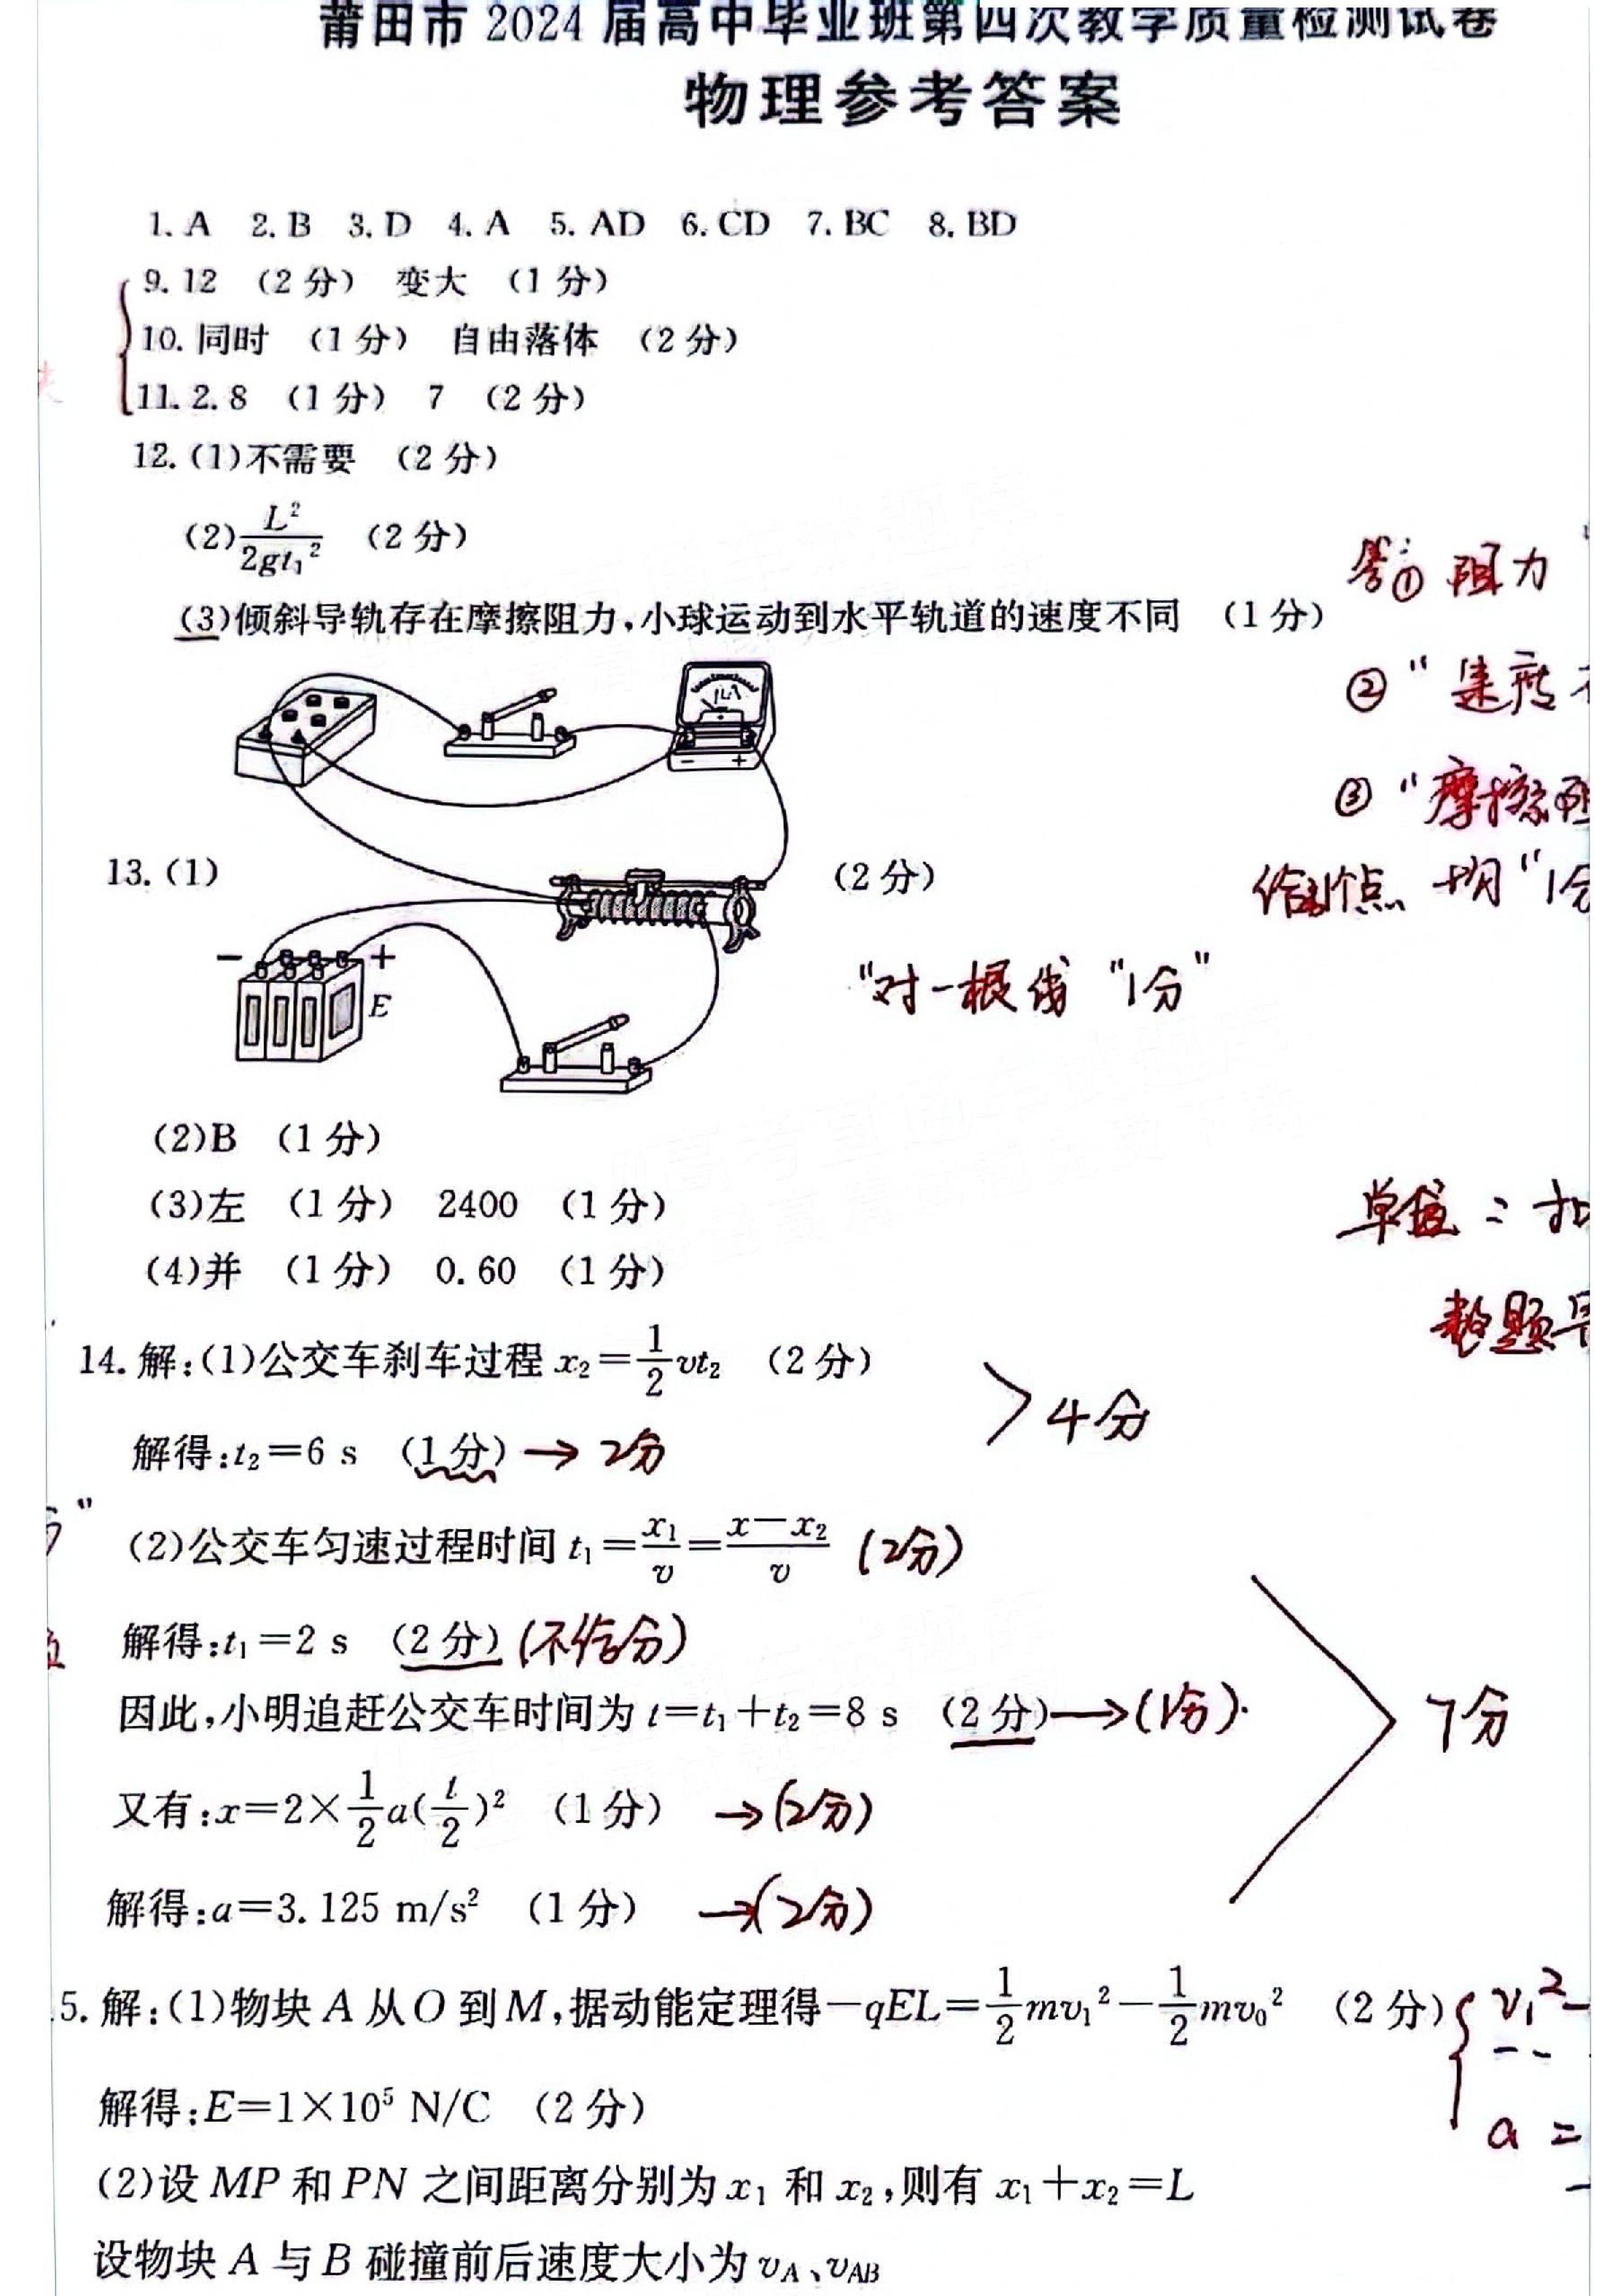 莆田市 2024 届高中毕业班第四次教学质量检测试卷
物理参考答案
1. A 2. B 3. D 4. A 5. AD 6. CD 7. BC 8. BD
9. 12 (2 分) 变大 (1 分)
10. 同时 (1 分) 自由落体 (2 分)
11. 2.8 (1 分) 7 (2 分)
12. (1)不需要 (2 分)
(2) L²/2gt₁² (2 分)
答: ① 阻力
(3)倾斜导轨存在摩擦阻力,小球运动到水平轨道的速度不同 (1 分)
② "速度
③ "摩擦阻
μA
− +
13. (1) (2 分)
给分点 均 "1分
− + E
"对一根线 "1分"
(2)B (1 分)
(3)左 (1 分) 2400 (1 分)
单位: 扣
(4)并 (1 分) 0.60 (1 分)
整题
14. 解:(1)公交车刹车过程 x₂=1/2 vt₂ (2 分)
>4分
解得:t₂=6 s (1 分) → 2分
(2)公交车匀速过程时间 t₁=x₁/v=(x−x₂)/v (2分)
解得:t₁=2 s (2 分) (不给分)
因此,小明追赶公交车时间为 t=t₁+t₂=8 s (2 分)→(1分)
7分
又有:x=2×1/2 a(t/2)² (1 分) →(2分)
解得:a=3.125 m/s² (1 分) →(2分)
5. 解:(1)物块 A 从 O 到 M,据动能定理得−qEL=1/2 mv₁²−1/2 mv₀² (2 分) { v₁²−
解得:E=1×10⁵ N/C (2 分)
a =
(2)设 MP 和 PN 之间距离分别为 x₁ 和 x₂,则有 x₁+x₂=L
设物块 A 与 B 碰撞前后速度大小为 v_A、v_AB